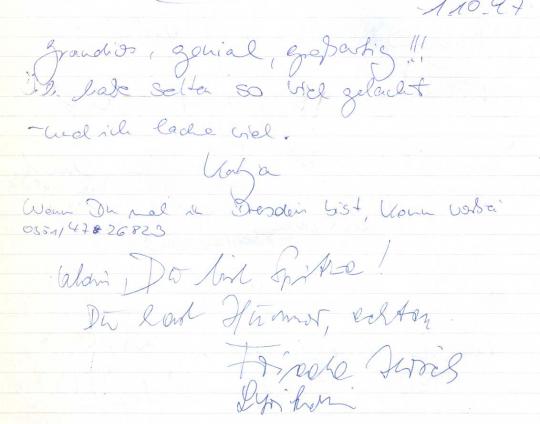 1.10.97
Grandios, genial, großartig!!!
Ich habe selten so viel gelacht
- und ich lache viel.
Katja
Wenn Du mal in Dresden bist, komm vorbei
0351/4726823
Du bist Spitze!
Du hast Humor, echten